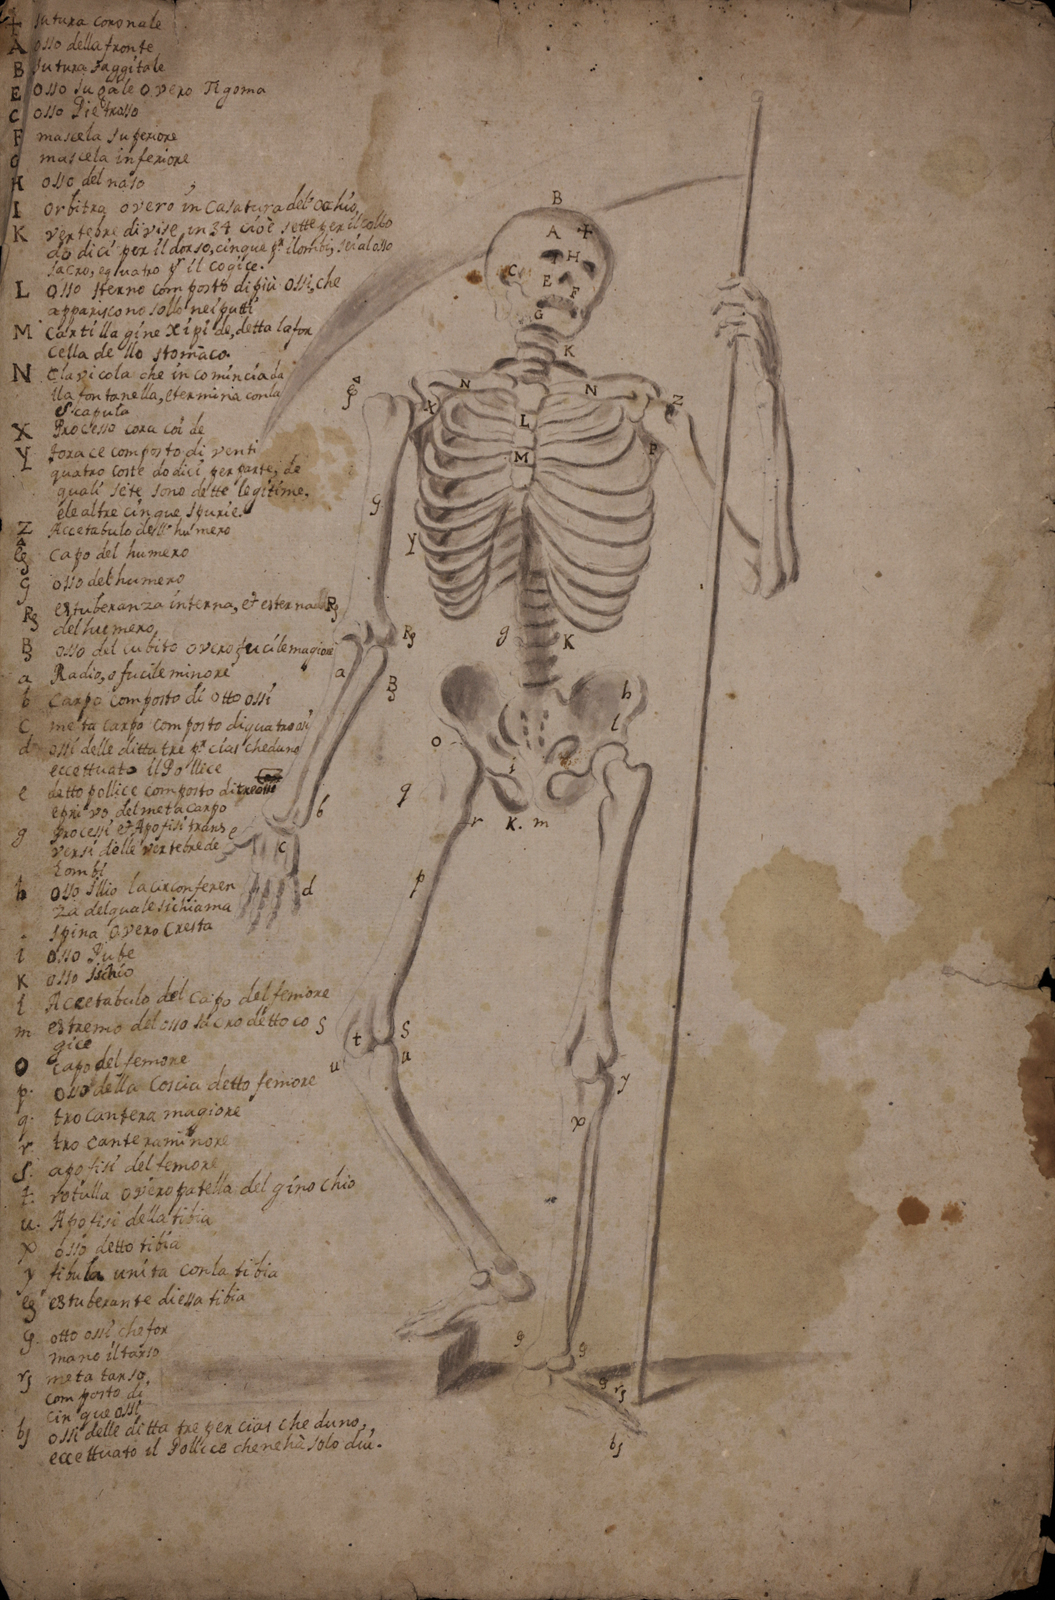 + sutura coronale
A osso della fronte
B sutura saggitale
E osso Jugale overo Zigoma
C osso Pietroso
F mascela superiore
G mascela inferiore
H osso del naso
I orbitra overo incasatura del ochio,
K vertebre divise in 34 cioè sette per il collo
do dici per il dorso, cinque pr i lombi, sei al osso
sacro, e quatro pr il cogice.
L osso sterno composto di più ossi, che
appariscono sollo nei putti
M Cartillagine Xipide, detta la for
cella dello stomaco.
N Clavicola che incomincia da
lla fontanella, e termina con la
scapula
X Processo coracoide
Y torace composto di venti
quatro coste dodici per parte, de
quali sete sono dette legitime.
e le altre cinque spurie.
Z Accetabulo dell' humero
capo del humero
g osso del humero
R estuberanza interna, et esterna
del huemero,
B osso del cubito overo fucile magiore
a Radio, o fucile minore
b Carpo composto di otto ossi
C metacarpo composto di quatro ossi
d ossi delle ditta tre pr ciascheduno
eccettuato il Pollice
e detto pollice composto di tre ossi
e privo, del metacarpo
g processi et Apofisi trans
versi delle vertebre de
Lombi
h osso Illio la circonferen
za del quale si chiama
spina overo Cresta
i osso Pube
K osso Ischio
l Accetabulo del capo del femore
m estremo del osso sacro detto co
gice
O capo del femore
p. osso della Coscia detto femore
q. trocantera magiore
r trocantera minore
S. apofisi del femore
t. rotulla overo patella del ginochio
u. Apofisi della tibia
x osso detto tibia
y fibula unita con la tibia
eg estuberante di essa tibia
g. otto ossi che for
mano il tarso
rs metatarso,
composto di
cinque ossi
bs ossi delle ditta tre per ciascheduno,
eccettuato il Pollice che ne hà solo diu.
B
A +
I H
C E F
G
K
N N
X Z
L
M P
g
Y
R
R g K
a B
h
l
o
i
q
b r K. m
e C
d p
S
t S
u u
y
x
g g
g rs
bs